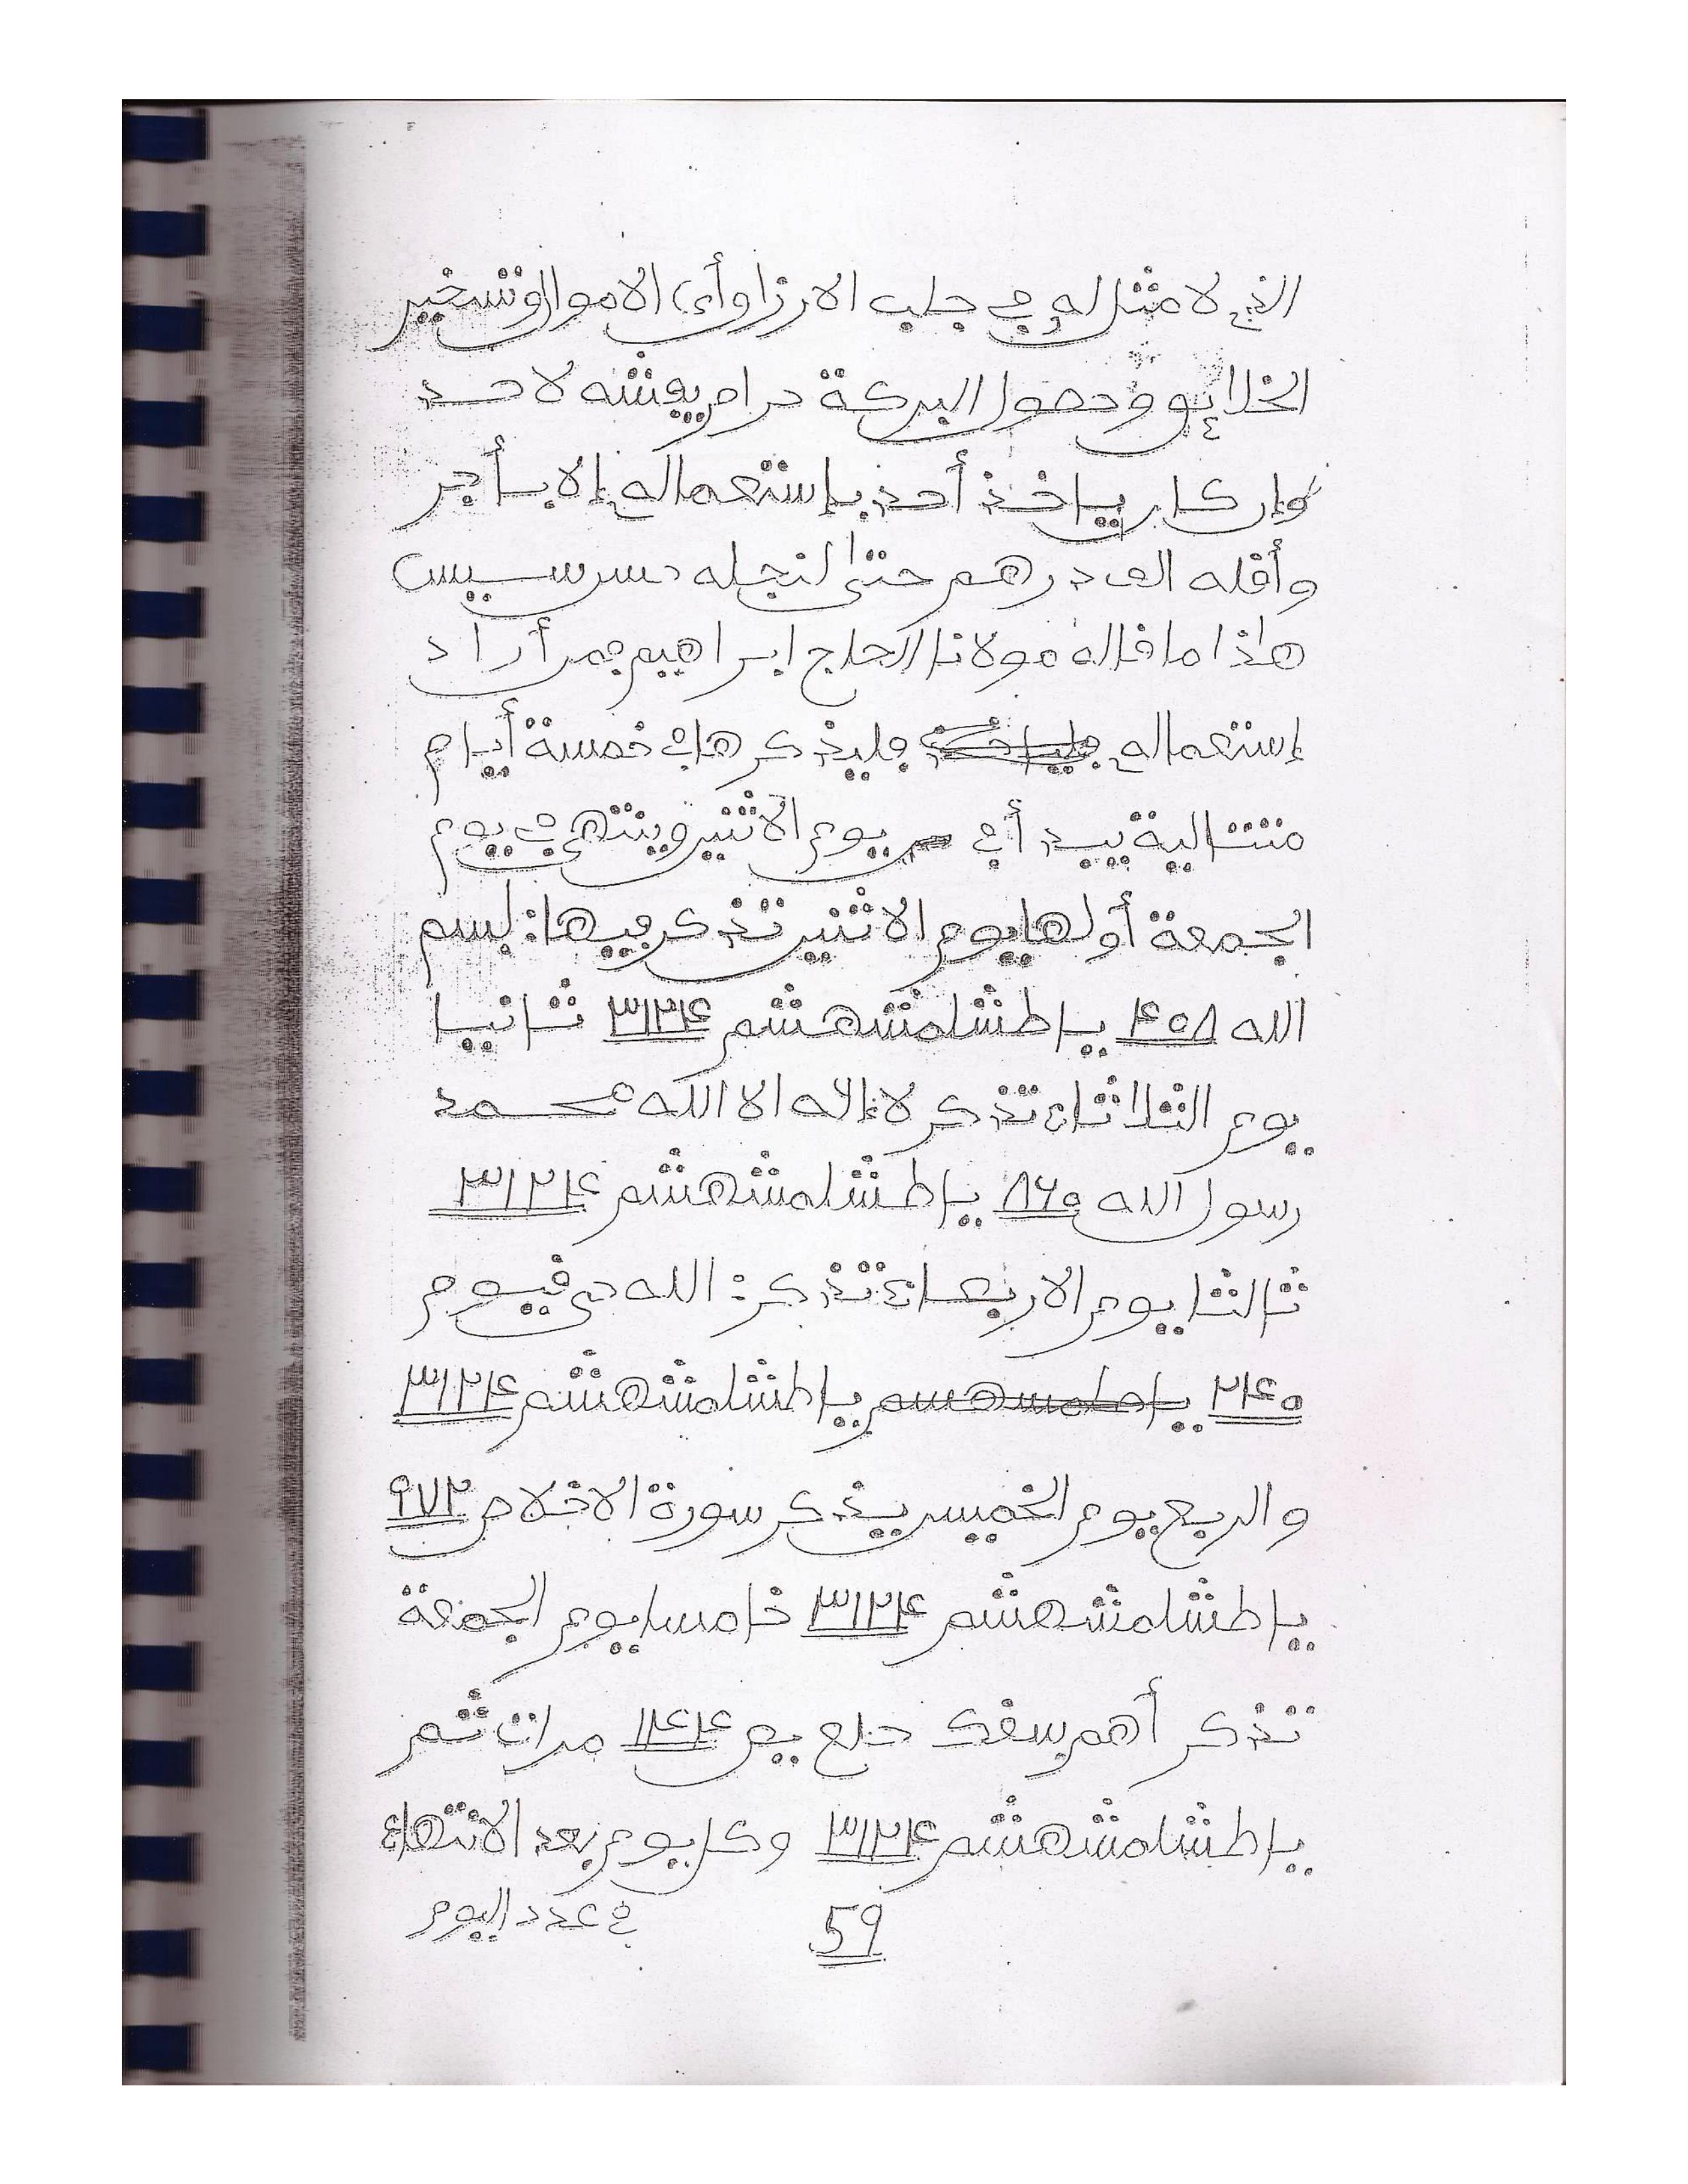 الذي لا مثل له في جلب الارزاق أي الاموال وتسخير
الخلائق وحصول البركة حرام يفشه لاحد
وإن كان ياخذ أحد بإستعماله إلا بأجر
وأقله الف درهم حتى لنجله سرسيس
هاذا ما قاله مولانا الحاج ابراهيم فمن أراد
إستعماله فليذكرها في خمسة أيام
متتالية يبدأ في يوم الاثنين وينتهي في يوم
الجمعة أولها يوم الاثنين تذكر فيها: بسم
الله ٤٥٨ يا طشلمشهشم ٣١٢٤ ثانيا
يوم الثلاثاء تذكر لا إلاه الا الله محمد
رسول الله ٨٦٥ يا طشلمشهشم ٣١٢٤
ثالثا يوم الاربعاء تذكر: الله حي قيوم
٢٤٥ يا طشلمشهشم ٣١٢٤
والربع يوم الخميس يذكر سورة الاخلاص ٩٧٢
يا طشلمشهشم ٣١٢٤ خامسا يوم الجمعة
تذكر أهم سقك حلع يص ١٤٤ مرات ثم
يا طشلمشهشم ٣١٢٤ وكل يوم بعد الانتهاء
59 في عدد اليوم